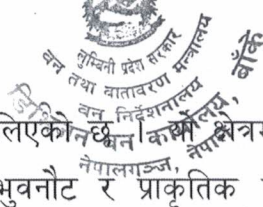 लुम्बिनी प्रदेश सरकार
वन तथा वातावरण मन्त्रालय
वन निर्देशनालय
डिभिजन वन कार्यालय,
नेपालगञ्ज, बाँके
नेपाल
लिएको छ । यो क्षेत्र
भुवनौट र प्राकृतिक